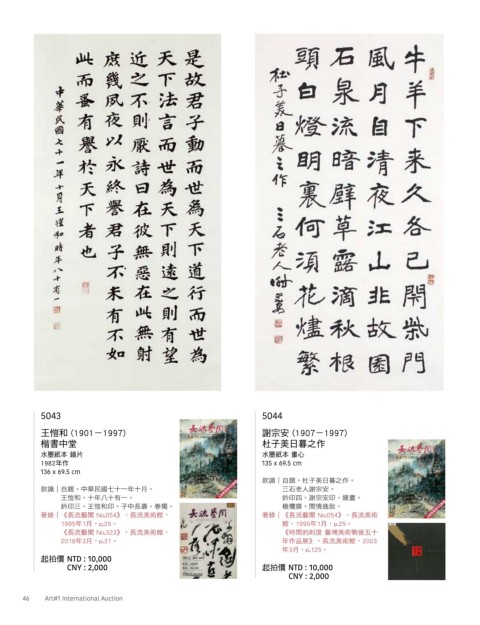 是故君子動而世為天下道行而世為
天下法言而世為天下則遠之則有望
近之不則厭詩曰在彼無惡在此無射
庶幾夙夜以永終譽君子不未有不如
此而蚤有譽於天下者也
中華民國七十一年十月王愷和時年八十有一
牛羊下来久各已閉柴門
風月自清夜江山非故園
石泉流暗壁草露滴秋根
頭白燈明裏何須花燼繁
杜子美日暮之作 三石老人
5043
王愷和 (1901－1997)
楷書中堂
水墨紙本 鏡片
1982年作
136 x 69.5 cm
款識｜自題。中華民國七十一年十月。
王愷和。十年八十有一。
鈐印三。王愷和印。子中長壽。春揚。
著錄｜《長流藝聞 No.054》，長流美術館，
1995年1月，p.25。
《長流藝聞 No.323》，長流美術館，
2018年3月，p.31。
起拍價 NTD : 10,000
CNY : 2,000
長流藝聞
長流藝聞
5044
謝宗安 (1907－1997)
杜子美日暮之作
水墨紙本 畫心
135 x 69.5 cm
款識｜自題。杜子美日暮之作。
三石老人謝宗安。
鈐印四。謝宗安印。鐘鼎。
橄欖齋。閒情逸致。
著錄｜《長流藝聞 No.054》，長流美術
館，1995年1月，p.25。
《時間的刻度 臺灣美術戰後五十
年作品展》，長流美術館，2003
年3月，p.125。
起拍價 NTD : 10,000
CNY : 2,000
長流藝聞
46 Art#1 International Auction